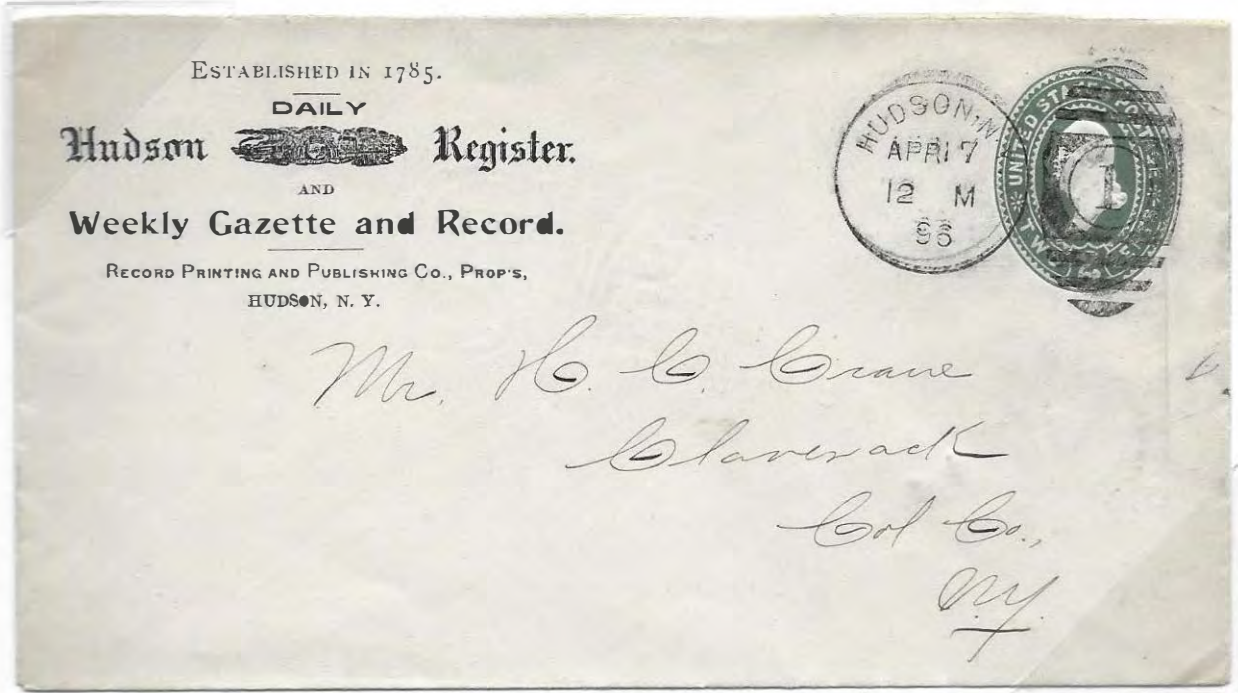 ESTABLISHED IN 1785.
DAILY
Hudson Register.
AND
Weekly Gazette and Record.
RECORD PRINTING AND PUBLISHING CO., PROP'S,
HUDSON, N. Y.
HUDSON, N
APR 17
12 M
96
UNITED STATES POSTAGE
TWO
1
Mr. H. C. Crane
Claverack
Col Co.,
N.Y.